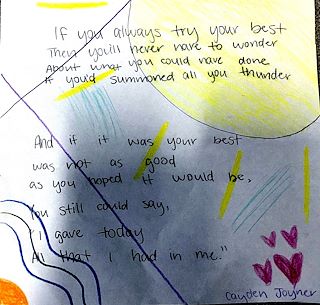 If you always try your best
Then you'll never have to wonder
About what you could have done
If you'd summoned all you thunder
And if it was your best
was not as good
as you hoped it would be,
You still could say,
"I gave today
All that I had in me."
Cayden Joyner